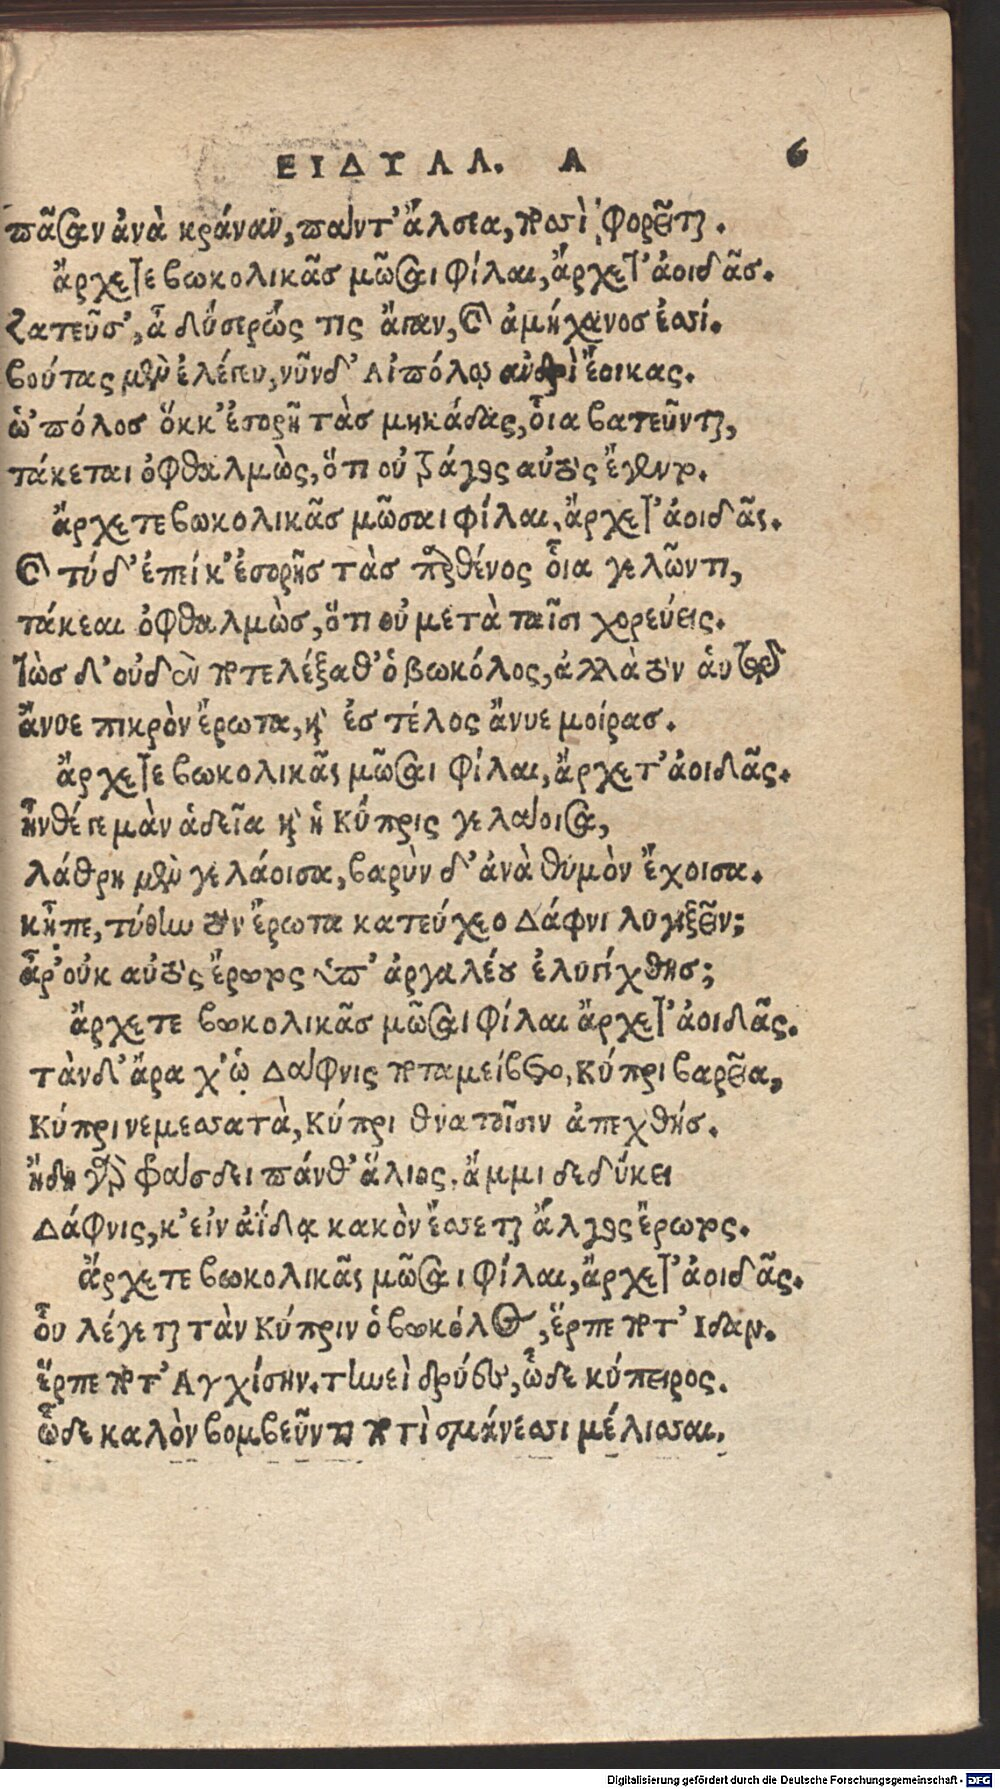 ΕΙΔΥΛΛ. Α 6
πᾶσαν ἀνὰ κράναν, παντ' ἄλσεα, ποσὶ φορεῖται.
ἄρχετε βωκολικᾶς μῶσαι φίλαι, ἄρχετ' ἀοιδᾶς.
ζατεῦσ', ἆ δύσερώς τις ἄγαν, καὶ ἀμήχανος ἐσσί.
βούτας μὲν ἐλέγευ, νῦν δ' Αἰπόλῳ ἀνδρὶ ἔοικας.
ᾡπόλος ὅκκ' ἐσορῇ τὰς μηκάδας, οἷα βατεῦνται,
τάκεται ὀφθαλμὼς, ὅτι οὐ τράγος αὐτὸς ἔγεντο.
ἄρχετε βωκολικᾶς μῶσαι φίλαι, ἄρχετ' ἀοιδᾶς.
καὶ τύ δ' ἐπεί κ' ἐσορῇς τὰς παρθένος οἷα γελῶντι,
τάκεαι ὀφθαλμὼς, ὅτι οὐ μετὰ ταῖσι χορεύεις.
τὼς δ' οὐδὲν ποτελέξαθ' ὁ βωκόλος, ἀλλὰ τὸν αὑτοῦ
ἄνυε πικρὸν ἔρωτα, καὶ ἐς τέλος ἄνυε μοίρας.
ἄρχετε βωκολικᾶς μῶσαι φίλαι, ἄρχετ' ἀοιδᾶς.
ἦνθέ γε μὰν ἁδεῖα καὶ ἁ Κύπρις γελάοισα,
λάθρη μὲν γελάοισα, βαρὺν δ' ἀνὰ θυμὸν ἔχοισα.
κἦπε, τύ θην τὸν ἔρωτα κατεύχεο Δάφνι λυγιξεῖν;
ἆρ' οὐκ αὐτὸς ἔρωτος ὑπ' ἀργαλέου ἐλυγίχθης;
ἄρχετε βωκολικᾶς μῶσαι φίλαι ἄρχετ' ἀοιδᾶς.
τὰν δ' ἄρα χ' ᾡ Δάφνις ποταμείβετο, Κύπρι βαρεῖα,
Κύπρι νεμεσσατὰ, Κύπρι θνατοῖσιν ἀπεχθής.
ἤδη γὰρ φράσδει πάνθ' ἅλιος, ἄμμι δεδύκει
Δάφνις, κ' εἰν ἀΐδᾳ κακὸν ἔσσεται ἄλγος ἔρωτος.
ἄρχετε βωκολικᾶς μῶσαι φίλαι, ἄρχετ' ἀοιδᾶς.
οὗ λέγεται τὰν Κύπριν ὁ βωκόλος, ἕρπε ποτ' Ιδαν.
ἕρπε ποτ' Αγχίσην. τηνεὶ δρύες, ὧδε κύπειρος.
ὧδε καλὸν βομβεῦντι ποτὶ σμάνεσσι μέλισσαι.
Digitalisierung gefördert durch die Deutsche Forschungsgemeinschaft - DFG